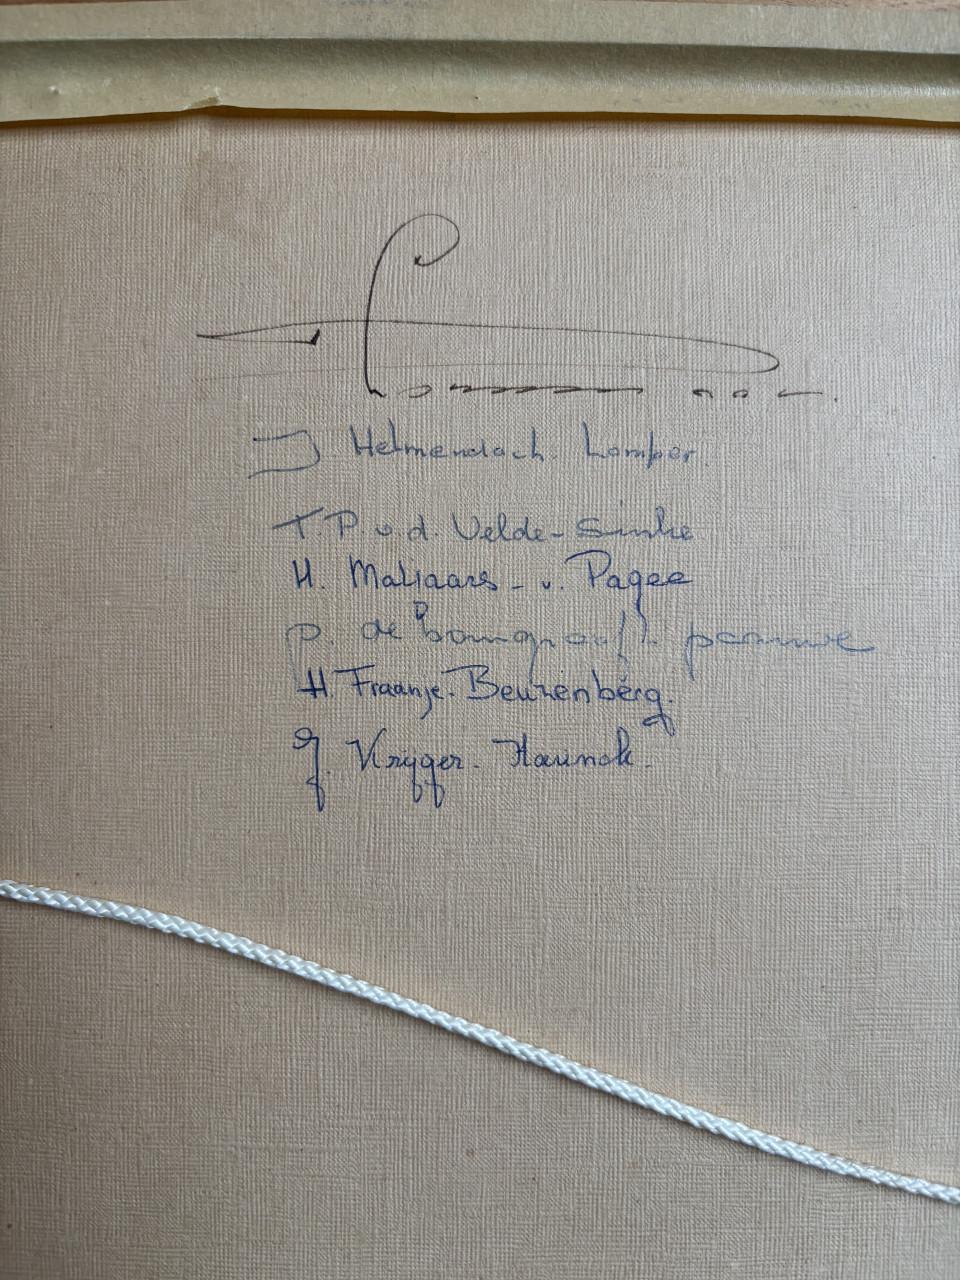 J. Helmendach. Lomper.
T. P. v. d. Velde - Sinke
H. Maljaars - v. Pagee
P. de
H Fraanje - Beuzenberg.
J. Krijger - Haunck.